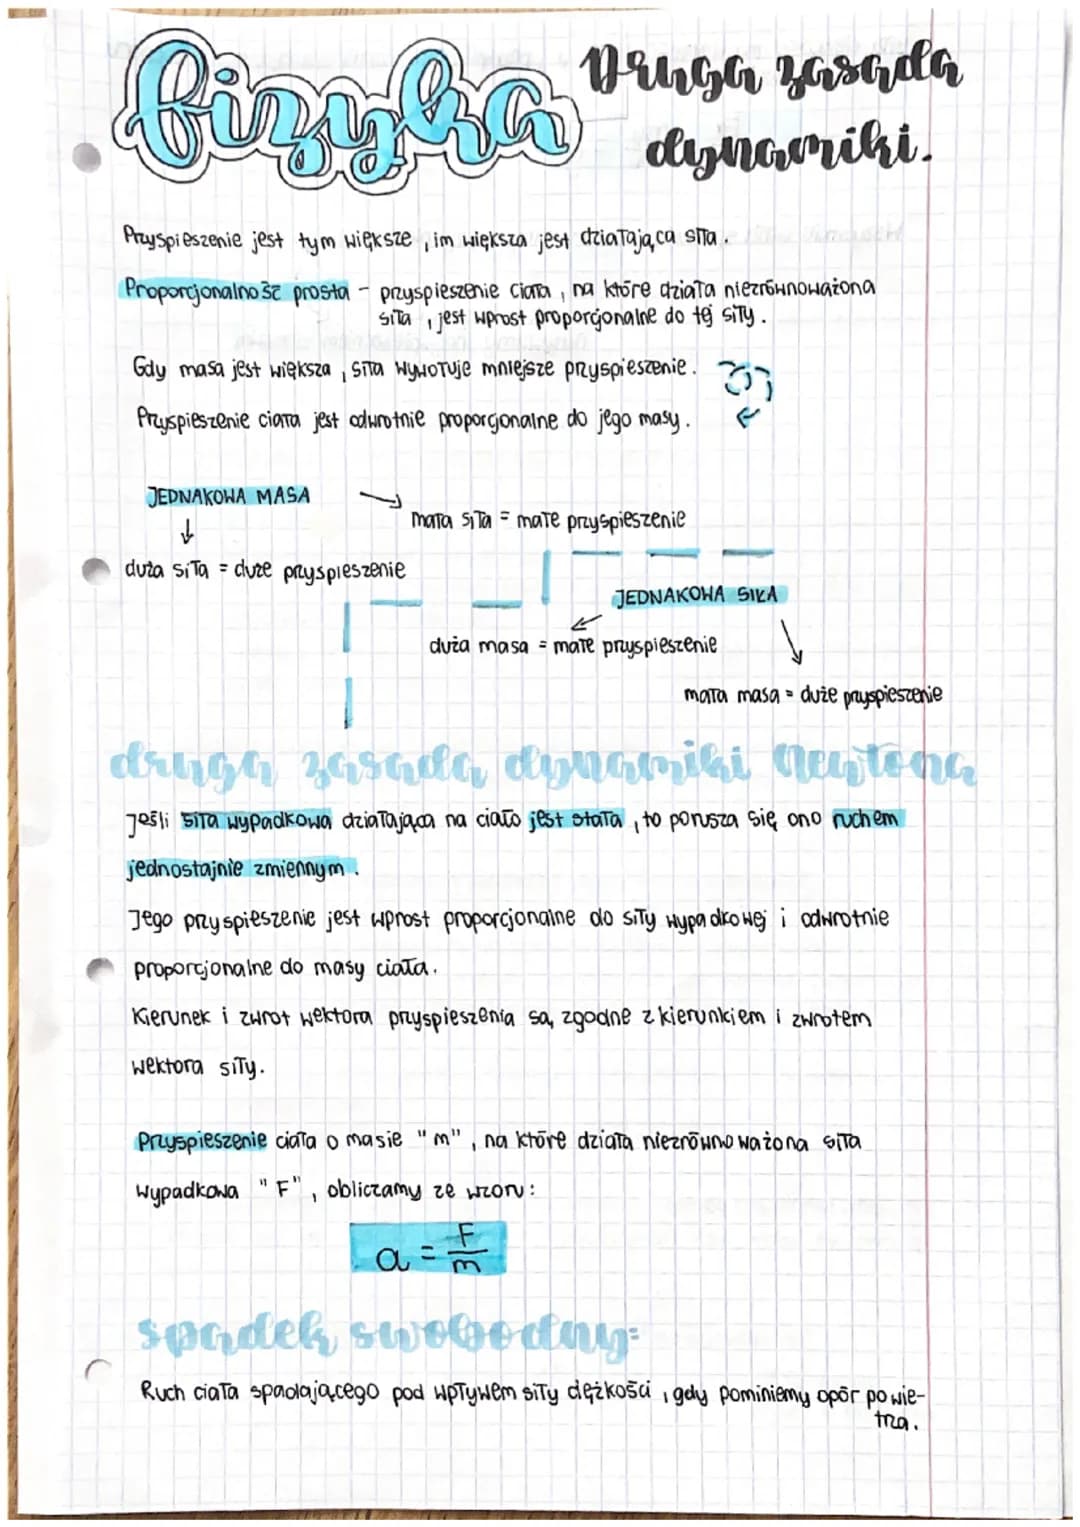 fizyka
Druga zasada
dynamiki.
Przyspieszenie jest tym większe, im większa jest działająca siła.
Proporcjonalność prosta - przyspieszenie ciała, na które działa niezrównoważona
siła, jest wprost proporcjonalne do tej siły.
Gdy masa jest większa, siła wywołuje mniejsze przyspieszenie.
Przyspieszenie ciała jest odwrotnie proporcjonalne do jego masy.
JEDNAKOWA MASA
mała siła = małe przyspieszenie
duża siła = duże przyspieszenie
JEDNAKOWA SIŁA
duża masa = małe przyspieszenie
mała masa = duże przyspieszenie
druga zasada dynamiki Newtona
Jeśli siła wypadkowa działająca na ciało jest stała, to porusza się ono ruchem
jednostajnie zmiennym.
Jego przyspieszenie jest wprost proporcjonalne do siły wypadkowej i odwrotnie
proporcjonalne do masy ciała.
Kierunek i zwrot wektora przyspieszenia są zgodne z kierunkiem i zwrotem
wektora siły.
Przyspieszenie ciała o masie "m", na które działa niezrównoważona siła
wypadkowa "F", obliczamy ze wzoru:
a = F/m
spadek swobodny:
Ruch ciała spadającego pod wpływem siły ciężkości, gdy pominiemy opór powie-
trza.